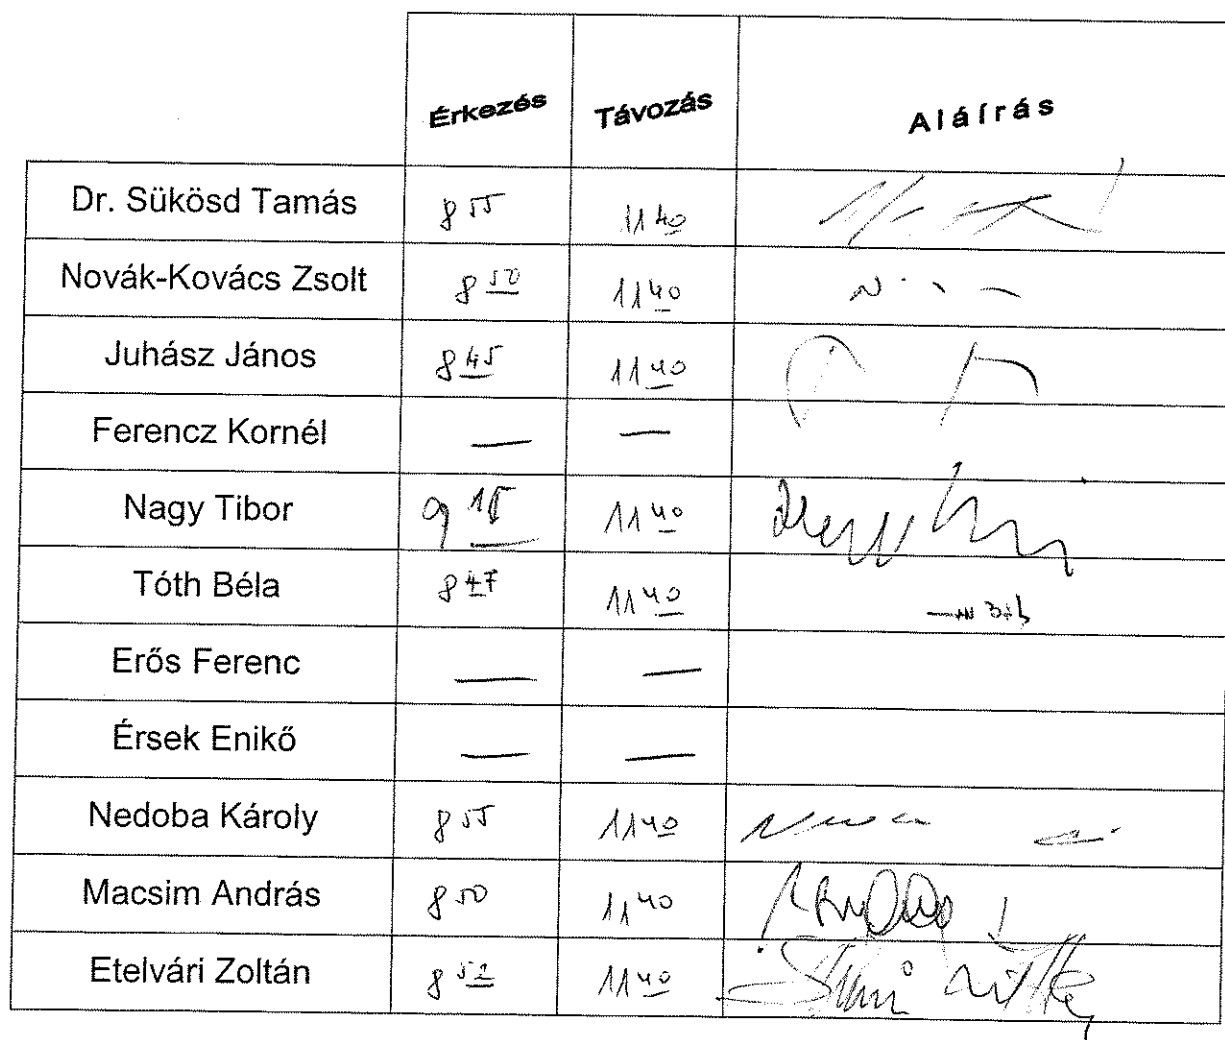 Érkezés Távozás Aláírás
Dr. Sükösd Tamás 8 55 11 40
Novák-Kovács Zsolt 8 50 11 40
Juhász János 8 45 11 40
Ferencz Kornél — —
Nagy Tibor 9 15 11 40
Tóth Béla 8 47 11 40
Erős Ferenc — —
Érsek Enikő — —
Nedoba Károly 8 55 11 40
Macsim András 8 50 11 40
Etelvári Zoltán 8 52 11 40